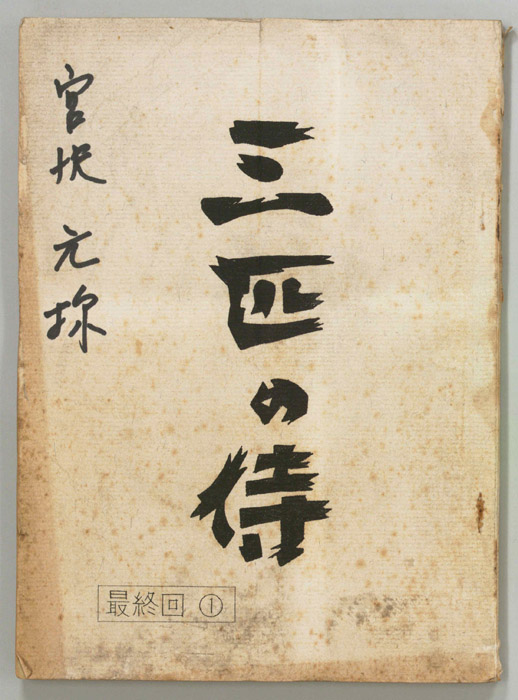 三匹の侍
宮
元
最終回 ①